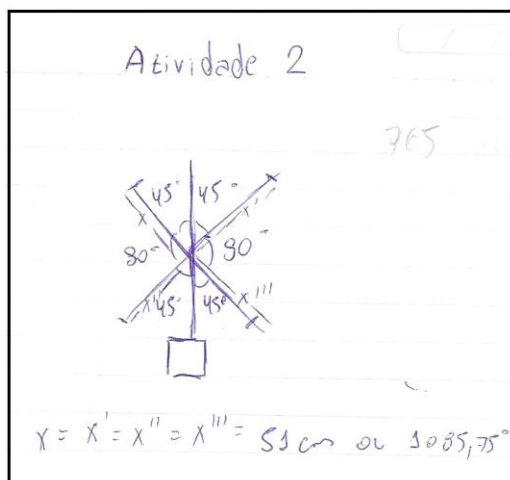 Atividade 2
765
45° 45°
x x'
90° 90°
x'' 45° 45° x'''
x = x' = x'' = x''' = 51 cm ou 1085,75°